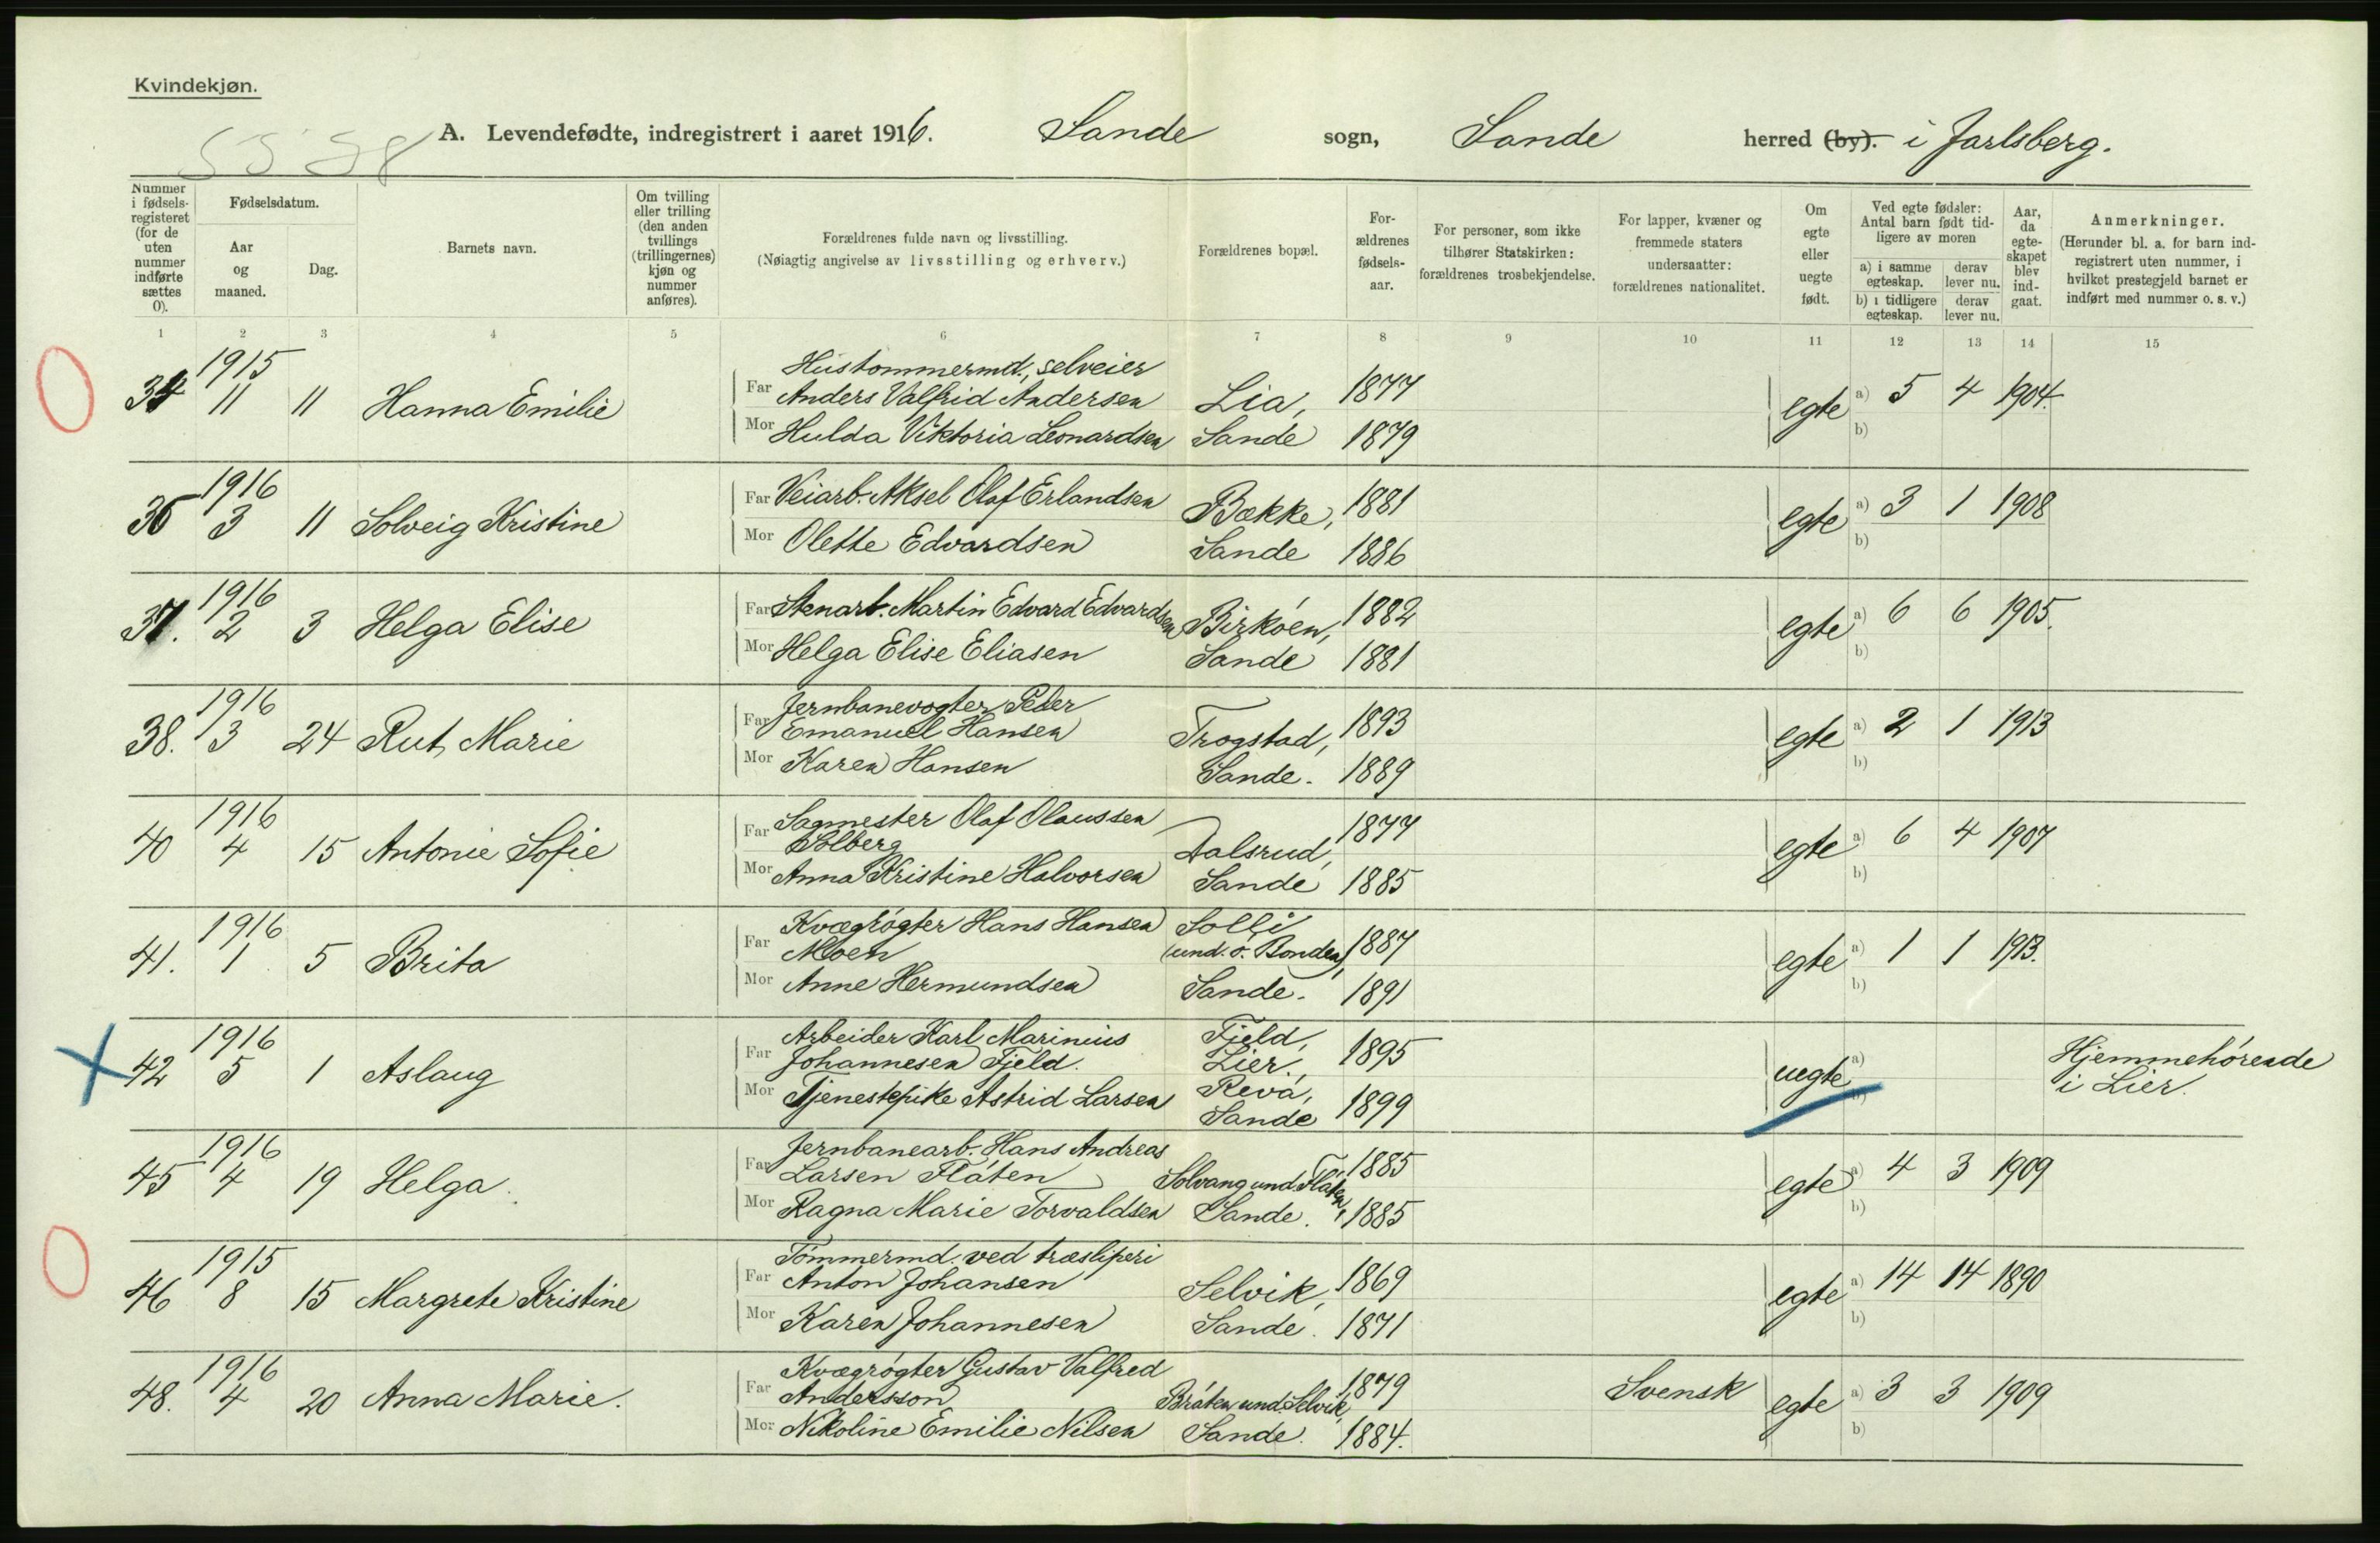 Kvindekjøn.
A. Levendefødte, indregistrert i aaret 1916. Sande sogn, Sande herred (by). i Jarlsberg.
Nummer i fødsels-registeret (for de uten nummer indførte sættes 0).
Fødselsdatum.
Aar og maaned.
Dag.
Barnets navn.
Om tvilling eller trilling (den anden tvillings (trillingernes) kjøn og nummer anføres).
Forældrenes fulde navn og livsstilling.
(Nøiagtig angivelse av livsstilling og erhverv.)
Forældrenes bopæl.
For-ældrenes fødsels-aar.
For personer, som ikke tilhører Statskirken: forældrenes trosbekjendelse.
For lapper, kvæner og fremmede staters undersaatter: forældrenes nationalitet.
Om egte eller uegte født.
Ved egte fødsler: Antal barn født tid-ligere av moren
a) i samme egteskap. derav lever nu.
b) i tidligere egteskap. derav lever nu.
Aar, da egte-skapet blev ind-gaat.
Anmerkninger.
(Herunder bl. a. for barn ind-registrert uten nummer, i hvilket prestegjeld barnet er indført med nummer o. s. v.)
1 2 3 4 5 6 7 8 9 10 11 12 13 14 15
1915 Hustommermd., selveier
34 11 11 Hanna Emilie Far Anders Valfrid Andersen Lia, 1877 egte a) 5 4 1904.
Mor Hulda Viktoria Leonardsen Sande 1879 b)
1916 Far Veiarb. Aksel Olaf Erlandsen Bække, 1881
36 3 11 Solveig Kristine egte a) 3 1 1908
Mor Olette Edvardsen Sande 1886 b)
1916 Far Stenarb. Martin Edvard Edvardsen Birkóen, 1882
37. 2 3 Helga Elise egte a) 6 6 1905.
Mor Helga Elise Eliasen Sande 1881 b)
1916 Jernbanevogter Peder
38. 3 24 Rut Marie Far Emanuel Hansen Trogstad, 1893 egte a) 2 1 1913
Mor Karen Hansen Sande. 1889 b)
1916 Sagmester Olaf Olaussen
40 4 15 Antonie Sofie Far Solberg Aalsrud, 1877 egte a) 6 4 1907
Mor Anna Kristine Halvorsen Sande 1885 b)
1916 Kvægrógter Hans Hansen Solli
41. 1 5 Brita Far Moen (und. ó. Bonden), 1887 egte a) 1 1 1913.
Mor Anne Hermundsen Sande. 1891 b)
1916 Arbeider Karl Marinius Fjeld,
42 5 1 Aslaug Far Johannesen Fjeld. Lier. 1895 uegte a) Hjemmehórende
Mor Tjenestepike Astrid Larsen Revá, Sande 1899 b) i Lier.
1916 Jernbanearb. Hans Andreas
45 4 19 Helga. Far Larsen Fláten Solvang und. Fláten, 1885 egte a) 4 3 1909
Mor Ragna Marie Torvaldsen Sande. 1885 b)
1915 Tómmermd. ved træsliperi
46 8 15 Margrete Kristine Far Anton Johansen Selvik, 1869 egte a) 14 14 1890
Mor Karen Johannesen Sande. 1871 b)
1916 Kvægrógter Gustav Valfred
48. 4 20 Anna Marie. Far Andersson Bráten und. Selvik, 1879 Svensk egte a) 3 3 1909
Mor Nikoline Emilie Nilsen Sande. 1884. b)